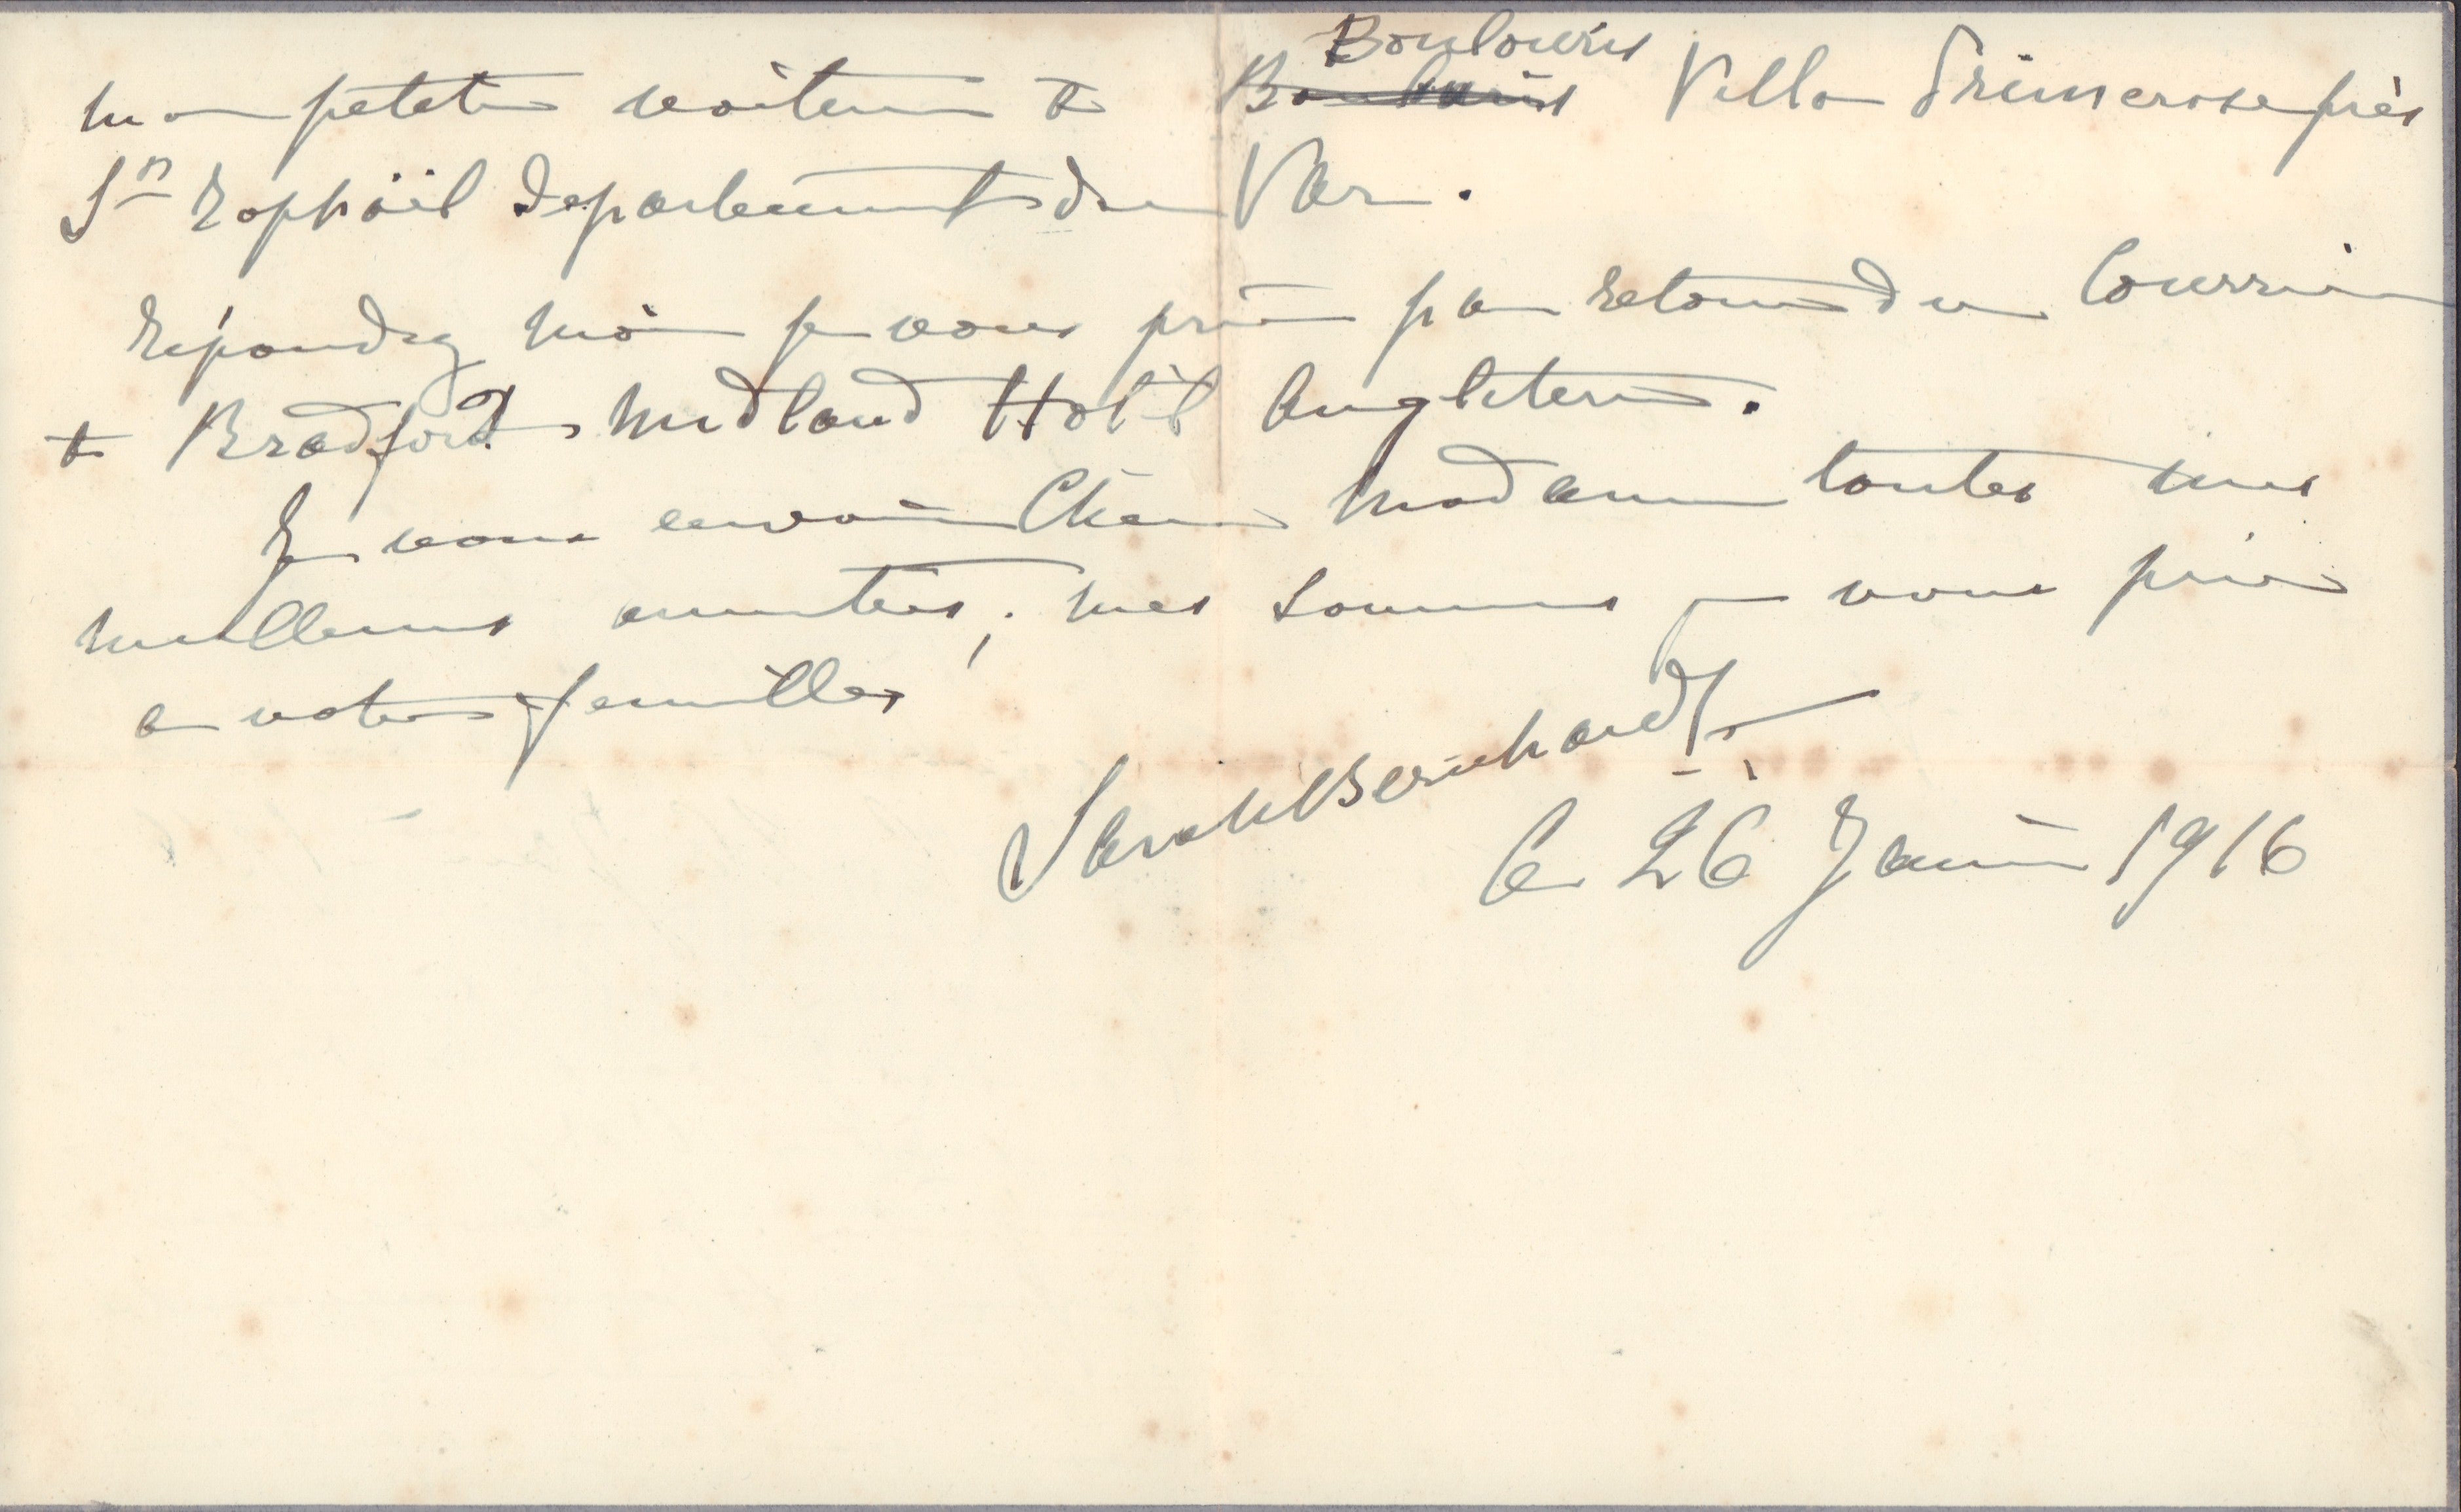 ma petite voiture à Boulouris Villa Primerose près
St Raphaël Departement du Var.
Répondez moi je vous prie par retour du Courrier
à Bradford Midland Hotel Angleterre.
Je vous envoie Chère Madame toutes mes
meilleures amitiés; mes je vous prie
a votre famille
Sarah Bernhardt
le 26 Janvier 1916